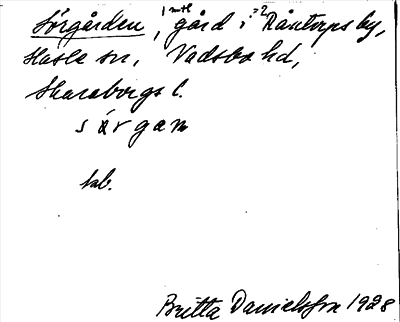 Sörgården, 1 mtl gård i Råntorps by,
Hasle sn, Vadsbo hd,
Skaraborgs l.
sörgan
tab.
Britta Danielsson 1928